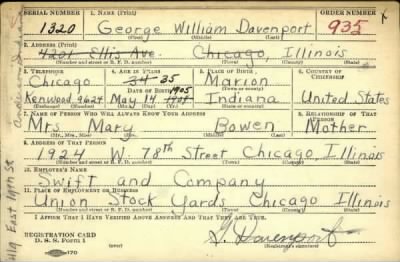 SERIAL NUMBER 1. NAME (Print) ORDER NUMBER
1320 George William Davenport 935
(First) (Middle) (Last)
2. ADDRESS (Print)
4201 Ellis Ave. Chicago, Illinois
(Number and street or R. F. D. number) (Town) (County) (State)
3. TELEPHONE 4. AGE IN YEARS 5. PLACE OF BIRTH 6. COUNTRY OF CITIZENSHIP
Chicago 34 35 Marion
DATE OF BIRTH (Town or county)
Kenwood 9624 May 14 1905 Indiana United States
(Exchange) (Number) (Mo.) (Day) (Yr.) (State or country)
7. NAME OF PERSON WHO WILL ALWAYS KNOW YOUR ADDRESS 8. RELATIONSHIP OF THAT PERSON
Mrs. Mary Bowen Mother
(Mr., Mrs., Miss) (First) (Middle) (Last)
9. ADDRESS OF THAT PERSON
1924 W. 78th Street Chicago, Illinois
(Number and street or R. F. D. number) (Town) (County) (State)
10. EMPLOYER'S NAME
Swift and Company
11. PLACE OF EMPLOYMENT OR BUSINESS
Union Stock Yards Chicago Illinois
(Number and street or R. F. D. number) (Town) (County) (State)
I AFFIRM THAT I HAVE VERIFIED ABOVE ANSWERS AND THAT THEY ARE TRUE.
REGISTRATION CARD
D. S. S. Form 1
G Davenport
(Registrant's signature)
East 49th St